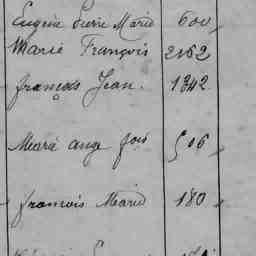 Eugène Pierre Marie 600
Marie François 2162
françois Jean. 1342
Marie ange fois 506
francois Marie 180